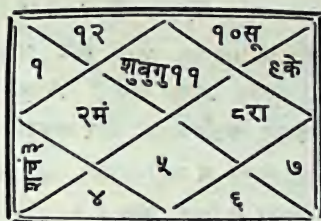 १२ १०सू
१ शुबुगु११ ९के
२मं ८रा
शचं३ ५ ७
४ ६